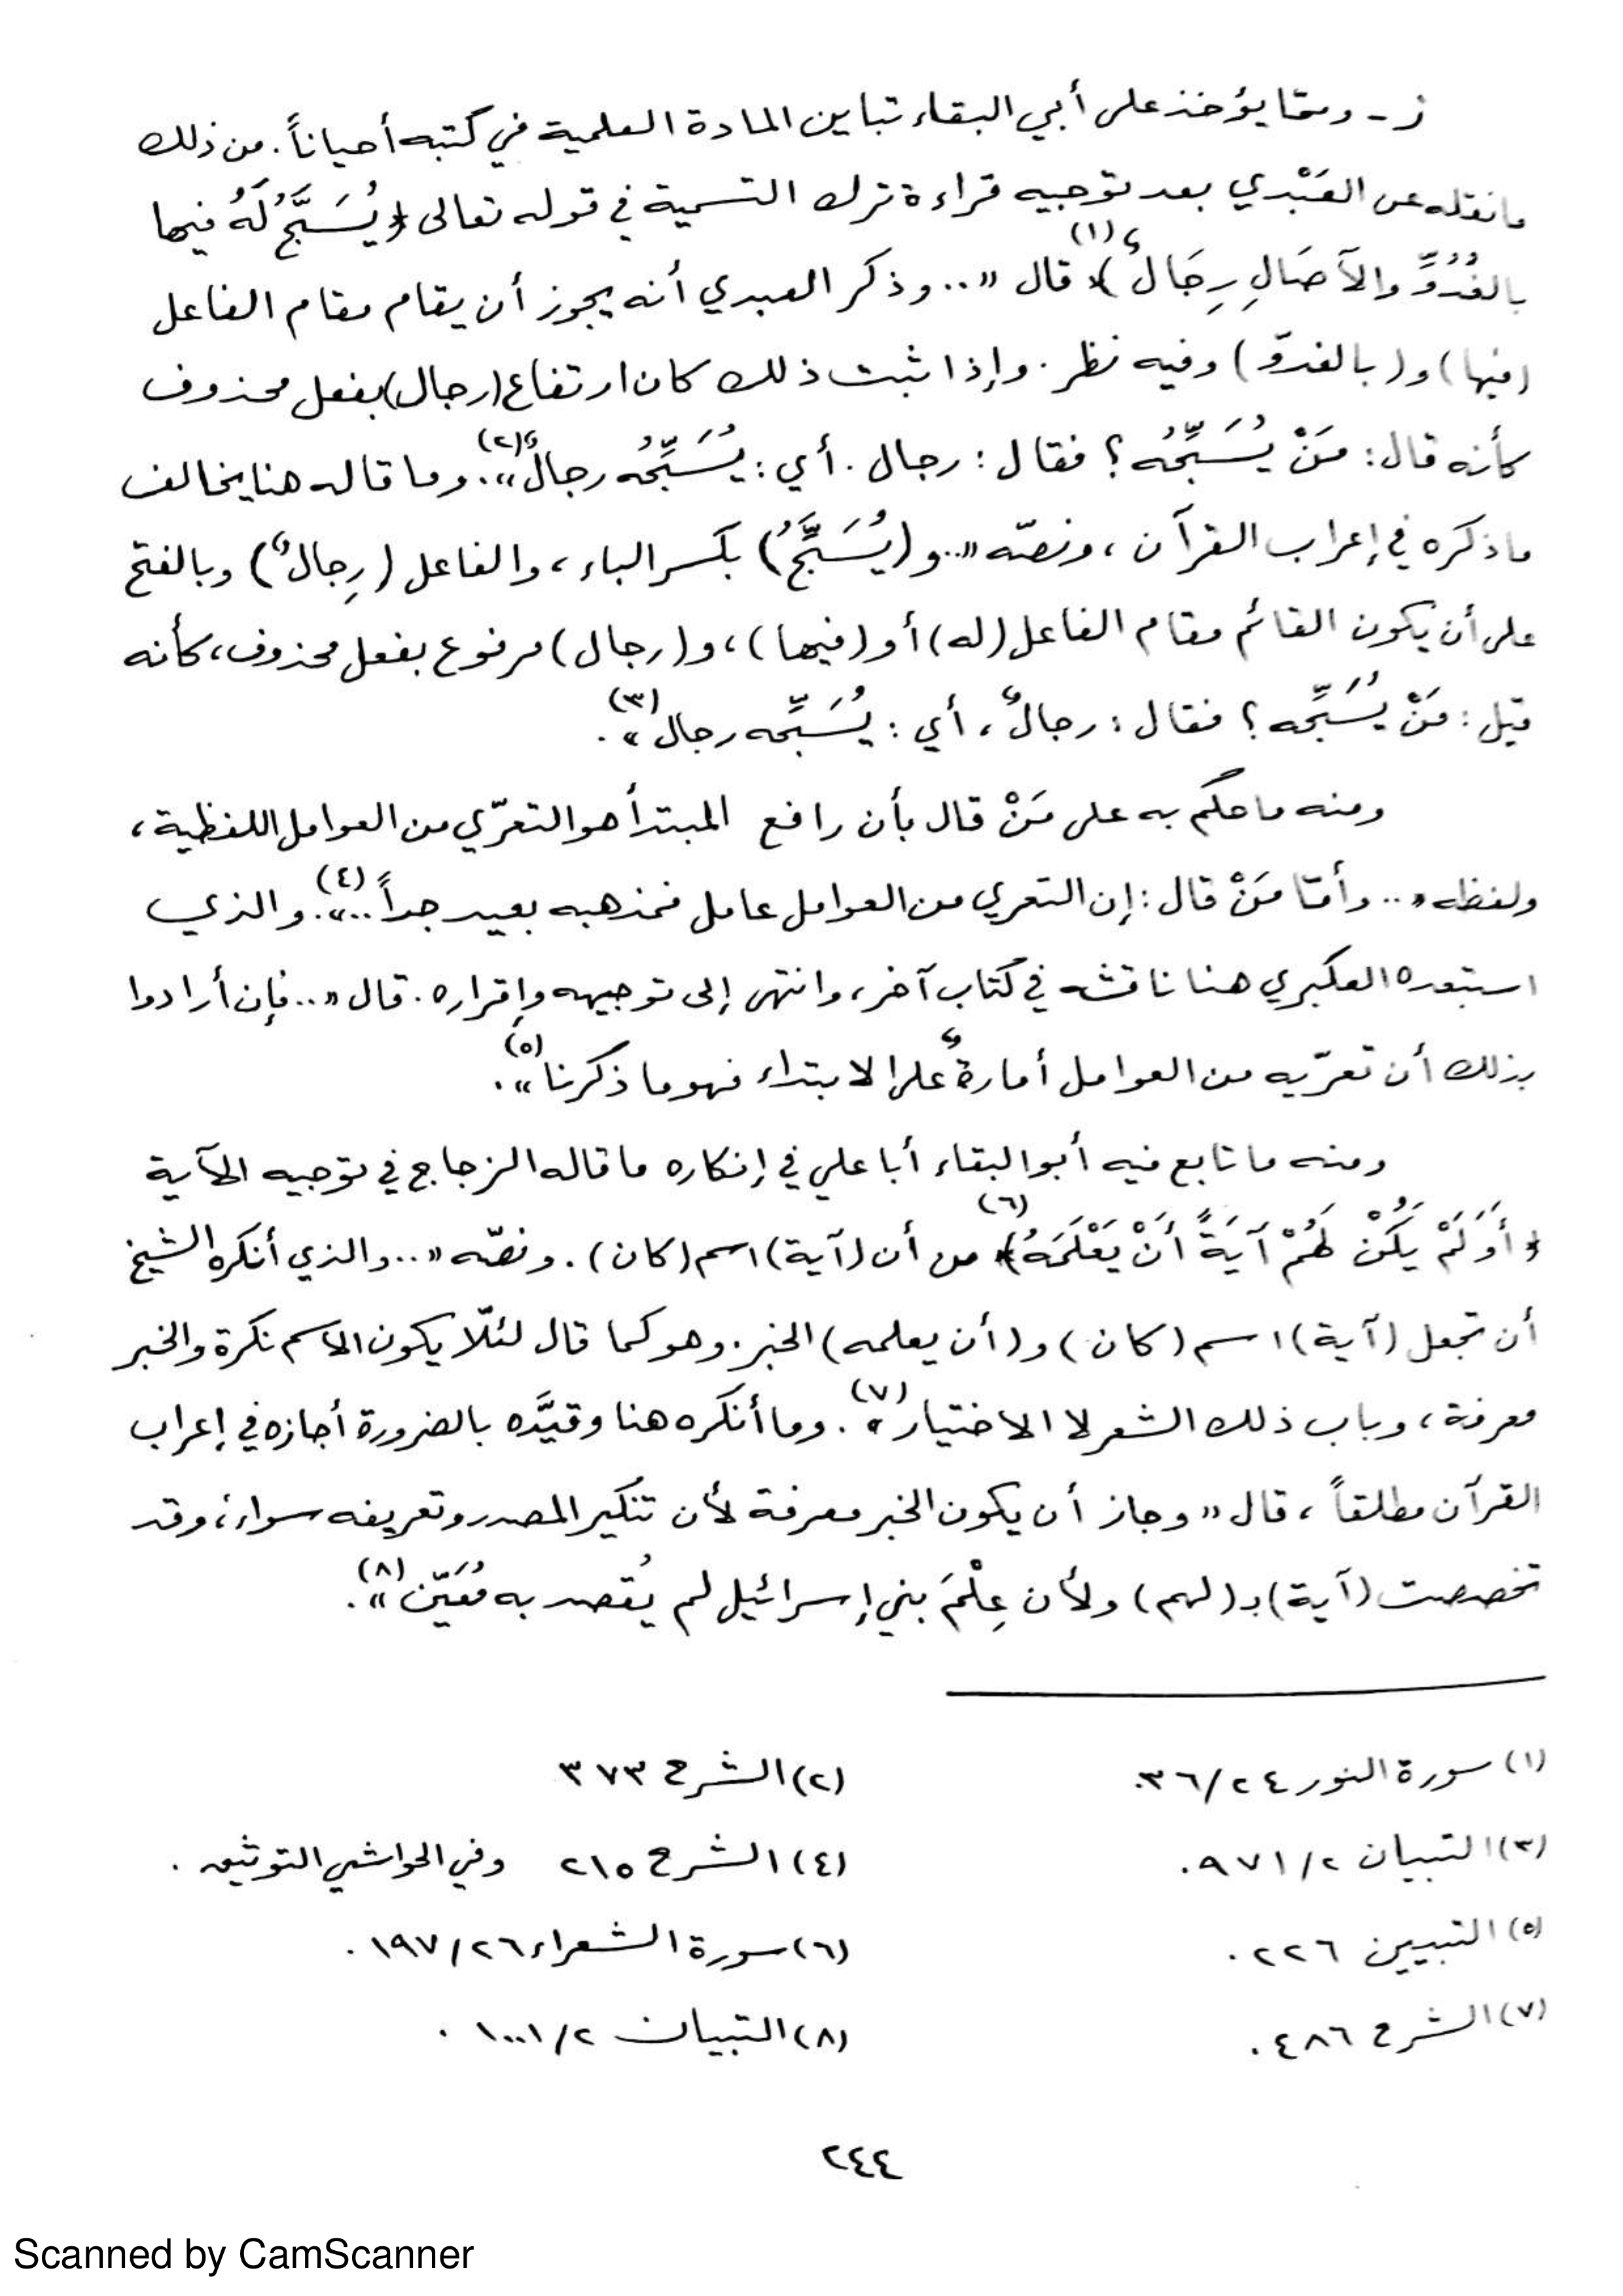 ز - وممّا يؤخذ على أبي البقاء تباين المادة العلمية في كتبه أحياناً. من ذلك
ما نقله عن العَبْدي بعد توجيه قراءة ترك التسمية في قوله تعالى ﴿يُسَبَّحُ لَهُ فيها
بالغُدُوِّ والآصَالِ رِجَالٌ﴾(١) قال «.. وذكر العبدي أنه يجوز أن يقام مقام الفاعل
(فيها) و(بالغدوّ) وفيه نظر. وإذا ثبت ذلك كان ارتفاع (رجال) بفعل محذوف
كأنه قال: مَنْ يُسَبِّحُه؟ فقال: رجال. أي: يُسَبِّحُه رجالٌ»(٢). وما قاله هنا يخالف
ما ذكره في إعراب القرآن، ونصّه «.. و(يُسَبِّحُ) بكسر الباء، والفاعل (رِجالٌ) وبالفتح
على أن يكون القائم مقام الفاعل (له) أو (فيها)، و(رجال) مرفوع بفعل محذوف، كأنه
قيل: مَنْ يُسَبِّحه؟ فقال: رجالٌ، أي: يُسَبِّحه رجال»(٣).
ومنه ما حكم به على مَنْ قال بأن رافع المبتدأ هو التعرّي من العوامل اللفظية،
ولفظه «.. وأمّا مَنْ قال: إن التعري من العوامل عامل فمذهبه بعيد جداً..»(٤). والذي
استبعده العكبري هنا ناقشه في كتاب آخر، وانتهى إلى توجيهه وإقراره. قال «.. فإن أرادوا
بذلك أن تعرّيه من العوامل أمارةٌ على الابتداء فهو ما ذكرنا»(٥).
ومنه ما تابع فيه أبو البقاء أبا علي في إنكاره ما قاله الزجاج في توجيه الآية
﴿أَوَلَمْ يَكُنْ لَهُمْ آيَةً أَنْ يَعْلَمَهُ﴾(٦) من أن (آية) اسم (كان). ونصّه «.. والذي أنكره الشيخ
أن تجعل (آية) اسم (كان) و(أن يعلمه) الخبر. وهو كما قال لئلّا يكون الاسم نكرة والخبر
معرفة، وباب ذلك الشعر لا الاختيار»(٧). وما أنكره هنا وقيَّده بالضرورة أجازه في إعراب
القرآن مطلقاً، قال «وجاز أن يكون الخبر معرفة لأن تنكير المصدر وتعريفه سواء، وقد
تخصصت (آية) بـ (لهم) ولأن عِلْمَ بني إسرائيل لم يُقصد به مُعَيّن»(٨).
(١) سورة النور ٢٤/٣٦.
(٢) الشرح ٣٧٣
(٣) التبيان ٢/٩٧١.
(٤) الشرح ٢١٥ وفي الحواشي التوثيق.
(٥) التبيين ٢٢٦.
(٦) سورة الشعراء ٢٦/١٩٧.
(٧) الشرح ٤٨٦.
(٨) التبيان ٢/١٠٠١.
٢٤٤
Scanned by CamScanner